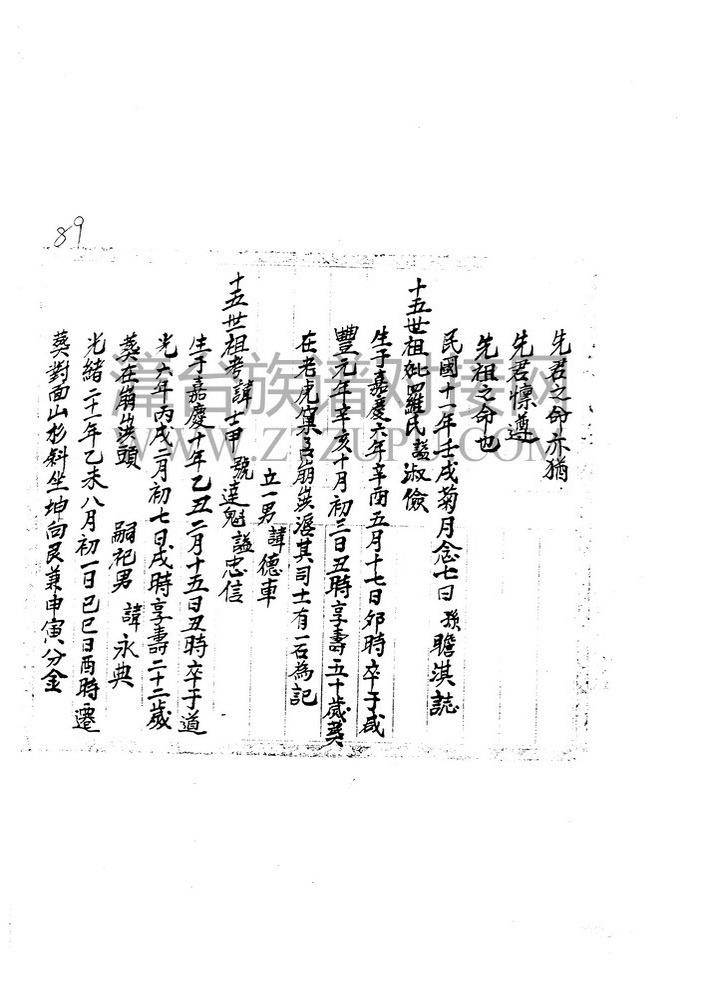 89
先君之命亦猶
先君懍遵
先祖之命也
民國十一年壬戌菊月念七日 孫瞻淇誌
十五世祖妣羅氏謚淑儉
生于嘉慶六年辛酉五月十七日卯時卒于咸
豐元年辛亥十月初三日丑時享壽五十歲葬
在老虎窠 崩崁 其司土有一石為記
立一男 諱德車
十五世祖考諱士甲 號達魁謚忠信
生于嘉慶十年乙丑二月十五日丑時卒于道
光六年丙戌二月初七日戌時享壽二十二歲
葬在崩崁頭 嗣祀男 諱永典
光緒二十一年乙未八月初一日己巳日酉時遷
葬對面山杉斜坐坤向艮兼申寅分金
漳台族谱对接网
WWW.ZTZUPU.COM